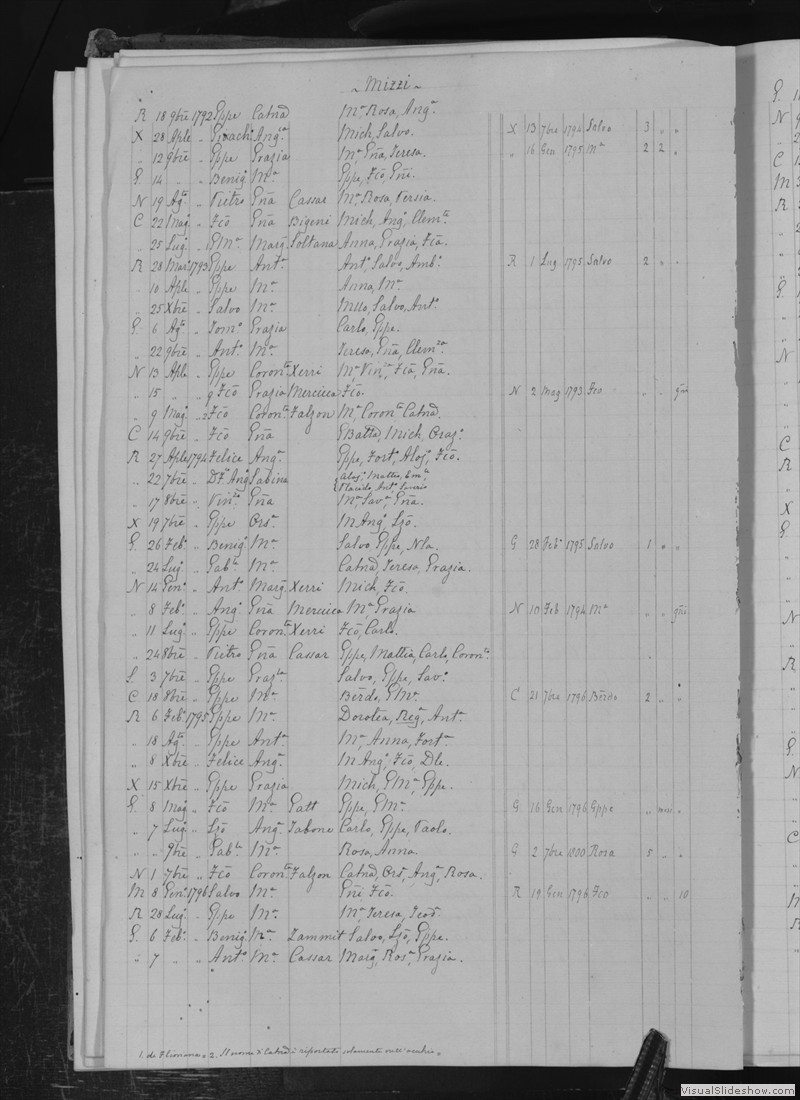 ~ Mizzi ~
R 18 9bre 1792 Gppe Catnᵈ Mᵃ, Rosa, Angᵃ
X 28 Aple " Angᶜᵃ Mich, Salvo. X 13 7bre 1794 Salvo 3 " "
" 12 9bre " Gppe Grazia Mᵃ, Gña, Teresa. " 16 Gen 1795 Mᵃ 2 2 "
G. 14 " " Benigᵒ Mᵃ Gppe, Fcõ, Gñi.
N 19 Agᵗᵒ " Pietro Gña Cassar Mᵃ, Rosa, Persia.
C 22 Magᵒ " Fcõ Gña Bigeni Mich, Angᵒ, Clemᵗᵉ
" 25 Lugᵒ " GMᵃ Margᵃ Soltana Anna, Grazia, Fcã.
R 28 Marᵒ 1793 Gppe Antᵃ Antᵒ, Salvo, Ambᵒ. R 1 Lug 1795 Salvo 2 " "
" 10 Aple " Gppe Mᵃ Anna, Mᵃ
" 25 Xbre " Salvo Mᵃ Mllo, Salvo, Antᵒ
G. 6 Agᵗᵒ " Tomᵒ Grazia Carlo, Gppe.
" 22 9bre " Antᵒ Mᵃ Teresa, Gña, Clemᶻᵃ
N 13 Aple " Gppe Coronᵗᵃ Xerri Mᵃ Vinᶻᵃ, Fcã, Gña.
" 15 " " Fcõ Grazia Mercieca Fcõ. N 2 Mag 1793 Fco " " gni
" 9 Magᵒ " 2 Fcõ Coronᵗᵃ Falzon Mᵃ Coronᵗᵃ Catnᵈ.
C 14 9bre " Fcõ Gña GBatta, Mich, Orazᵒ
R 27 Aple 1794 Felice Angᵃ Gppe, Fortᵒ, Alojᵒ, Fcõ.
" 22 7bre " Dʳ Angᵒ Sabina Alojᵒ, Matteo, Emˡᵉ Placido, Antᵒ
" 17 8bre " Vinᶻᵒ Gña Mᵃ, Savᵃ, Gña.
X 19 7bre " Gppe Orsᵃ MAngᵒ, Lzõ.
G. 26 Febᵒ " Benigᵒ Mᵃ Salvo, Gppe, Nla. G 28 Feb 1795 Salvo 1 " "
" 24 Lugᵒ " Gabˡᵉ Mᵃ Catnᵈ, Teresa, Grazia.
N 14 Genᵒ " Antᵒ Margᵃ Xerri Mich, Fcõ.
" 8 Febᵒ " Angᵒ Gña Mercieca Mᵃ Grazia N 10 Feb 1794 Mᵃ " " gni
" 11 Lugᵒ " Gppe Coronᵗᵃ Xerri Fcõ, Carlo.
" 24 8bre " Pietro Gña Cassar Gppe, Mattia, Carlo, Coronᵗᵃ
S. 3 7bre " Gppe Grazˡᵃ Salvo, Gppe, Savᵒ
C 18 8bre " Gppe Mᵃ Berdo, GMᵃ C 21 7bre 1796 Berdo 2 " "
R 6 Febᵒ 1795 Gppe Mᵃ Dorotea, Regᵃ, Antᵃ
" 18 Agᵗᵒ " Gppe Antᵃ Mᵃ, Anna, Fortᵃ
" 8 Xbre " Felice Angᵃ MAngᵒ, Fcõ, Dle.
X 15 Xbre " Gppe Grazia Mich, GMᵃ, Gppe.
G. 8 Magᵒ " Fcõ Mᵃ Gatt Gppe, GMᵃ G 16 Gen 1796 Gppe " mesi "
" 7 Lugᵒ " Lzõ Angᵃ Tabone Carlo, Gppe, Paolo.
" " 9bre " Gabˡᵉ Mᵃ Rosa, Anna. G 2 7bre 1800 Rosa 5 " "
N 1 7bre " Fcõ Coronᵗᵃ Falzon Catnᵈ, Orsᵃ, Angᵃ, Rosa.
M 8 Genᵒ 1796 Salvo Mᵃ Gñi. Fcõ. R 19 Gen 1796 Fco " " 10
R 28 Lugᵒ " Gppe Mᵃ Mᵃ, Teresa, Teodᵃ
G. 6 Febᵒ " Benigᵒ Mᵃ Zammit Salvo, Lzõ, Gppe.
" 7 " " Antᵒ Mᵃ Cassar Margᵃ, Rosᵃ, Grazia.
1. de Floriana. 2. Il nome di Catnᵈ è riportato solamente nell'
VisualSlideshow.com